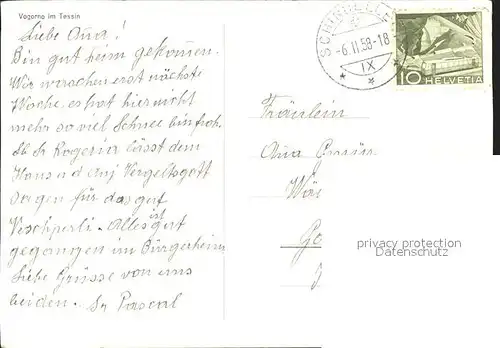 Vogorno im Tessin
Liebe Anna!
Bin gut heim gekommen.
Wir waschen erst nächste
Woche. es hat hier nicht
mehr so viel Schnee bin froh.
Sr Rogeria lässt dem
Hans u d Vergeltsgott
sagen für das gut
Veschperli. Alles ist gut
gegangen im Bürgerheim
Liebe Grüsse von uns
beiden. Sr Pascal
-6.II.58-18
IX
10 HELVETIA
Fräulein
Anna
privacy protection
Datenschutz